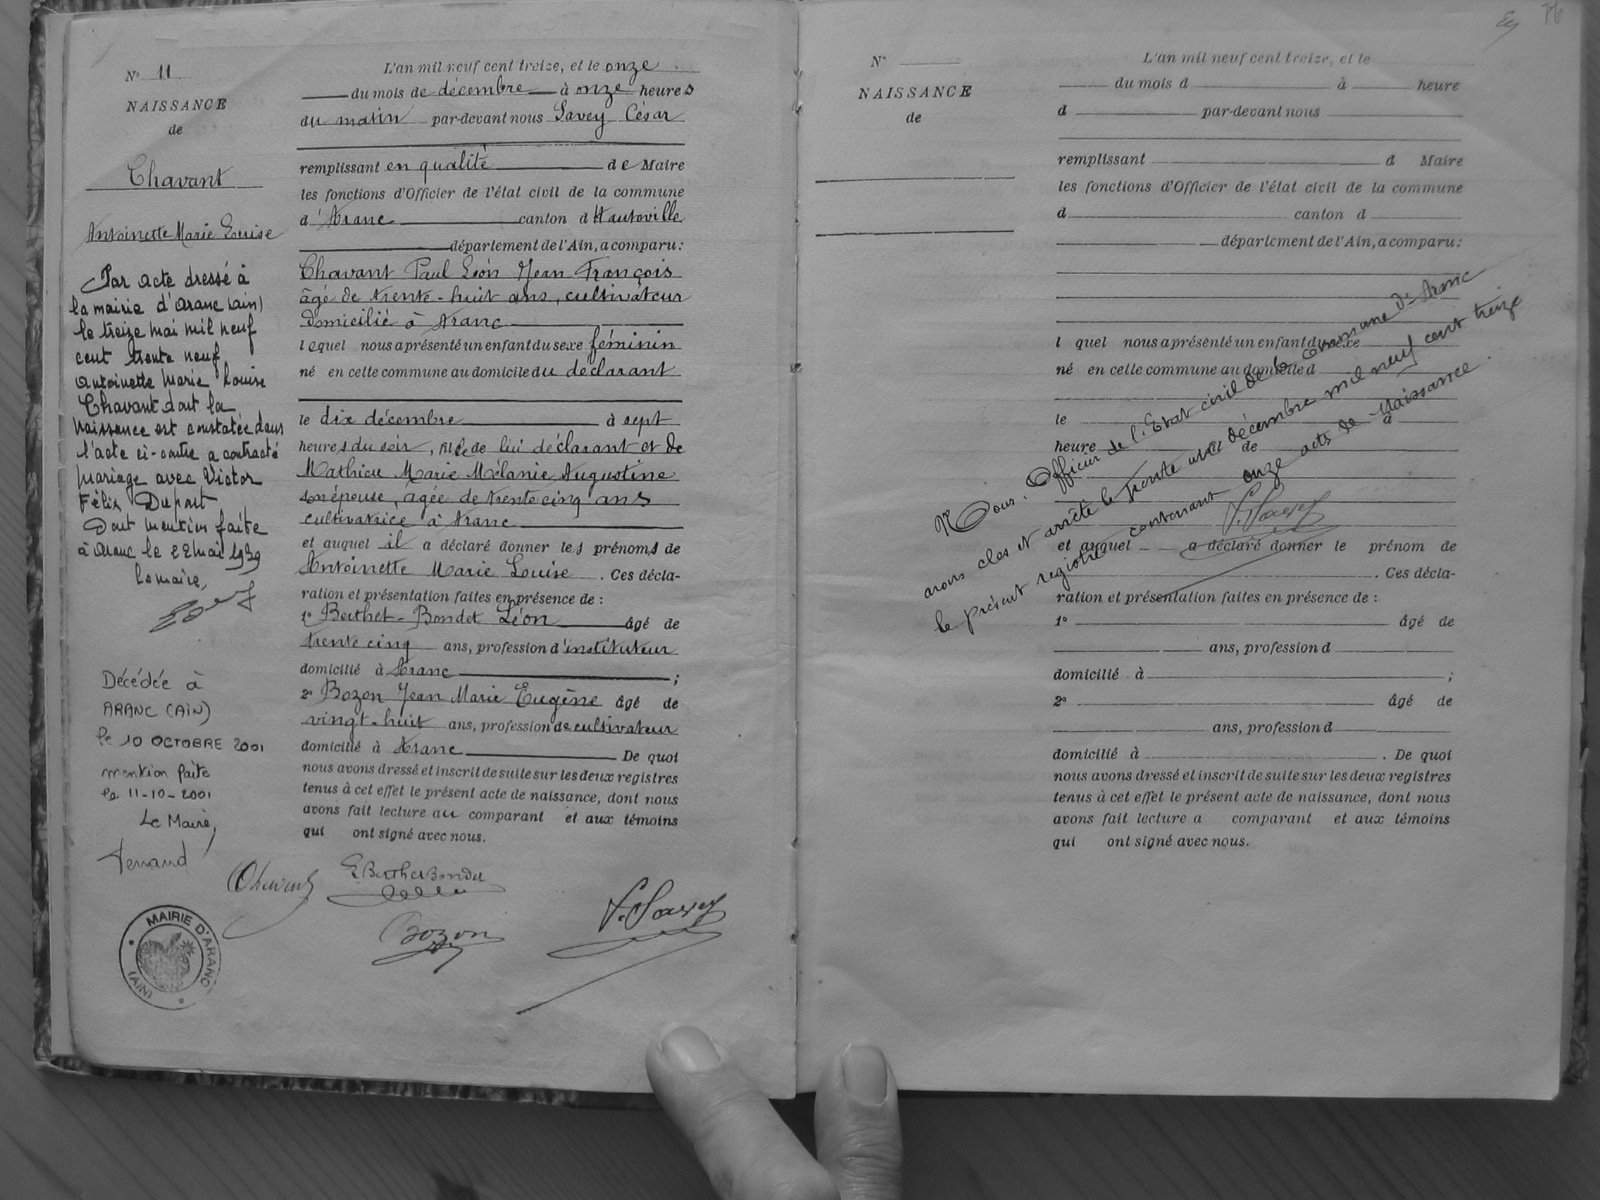 N° 11
NAISSANCE
de
Chavant
Antoinette Marie Louise
Par acte dressé à
la mairie d'Aranc (ain)
le treize mai mil neuf
cent trente neuf
Antoinette Marie Louise
Chavant dont la
Naissance est constatée dans
l'acte ci-contre a contracté
mariage avec Victor
Félix Dupont
Dont mention faite
à Aranc le 22 mai 1939
le maire,
Décédée à
ARANC (AIN)
le 10 OCTOBRE 2001
mention faite
le 11-10-2001
Le Maire,
MAIRIE D'ARANC
(AIN)
L'an mil neuf cent treize, et le onze
du mois de décembre à onze heures
du matin par-devant nous Savey César
remplissant en qualité de Maire
les fonctions d'Officier de l'état civil de la commune
d'Aranc canton d'Hauteville
département de l'Ain, a comparu :
Chavant Paul Léon Jean François
âgé de trente-huit ans, cultivateur
domicilié à Aranc
lequel nous a présenté un enfant du sexe féminin
né en cette commune au domicile du déclarant
le dix décembre à sept
heures du soir, née de lui déclarant et de
Mathieu Marie Mélanie Augustine
son épouse, agée de trente cinq ans
cultivatrice à Aranc
et auquel il a déclaré donner les prénoms de
Antoinette Marie Louise . Ces décla-
ration et présentation faites en présence de :
1° Berthet-Bondet Léon âgé de
trente cinq ans, profession d'instituteur
domicilié à Aranc ;
2° Bozon Jean Marie Eugène âgé de
vingt-huit ans, profession de cultivateur
domicilié à Aranc De quoi
nous avons dressé et inscrit de suite sur les deux registres
tenus à cet effet le présent acte de naissance, dont nous
avons fait lecture au comparant et aux témoins
qui ont signé avec nous.
Chavant
L. Berthet Bondet
Bozon
N°
NAISSANCE
de
L'an mil neuf cent treize, et le
du mois d à heure
d par-devant nous
remplissant d Maire
les fonctions d'Officier de l'état civil de la commune
d canton d
département de l'Ain, a comparu :
l quel nous a présenté un enfant du sexe
né en cette commune au domicile d
le à
heure de
et auquel a déclaré donner le prénom de
. Ces décla-
ration et présentation faites en présence de :
1° âgé de
ans, profession d
domicilié à ;
2° âgé de
ans, profession d
domicilié à . De quoi
nous avons dressé et inscrit de suite sur les deux registres
tenus à cet effet le présent acte de naissance, dont nous
avons fait lecture a comparant et aux témoins
qui ont signé avec nous.
Nous, Officier de l'Etat civil de la commune d'Aranc
avons clos et arrêté le trente un décembre mil neuf cent treize
le présent registre contenant onze acts de Naissance.